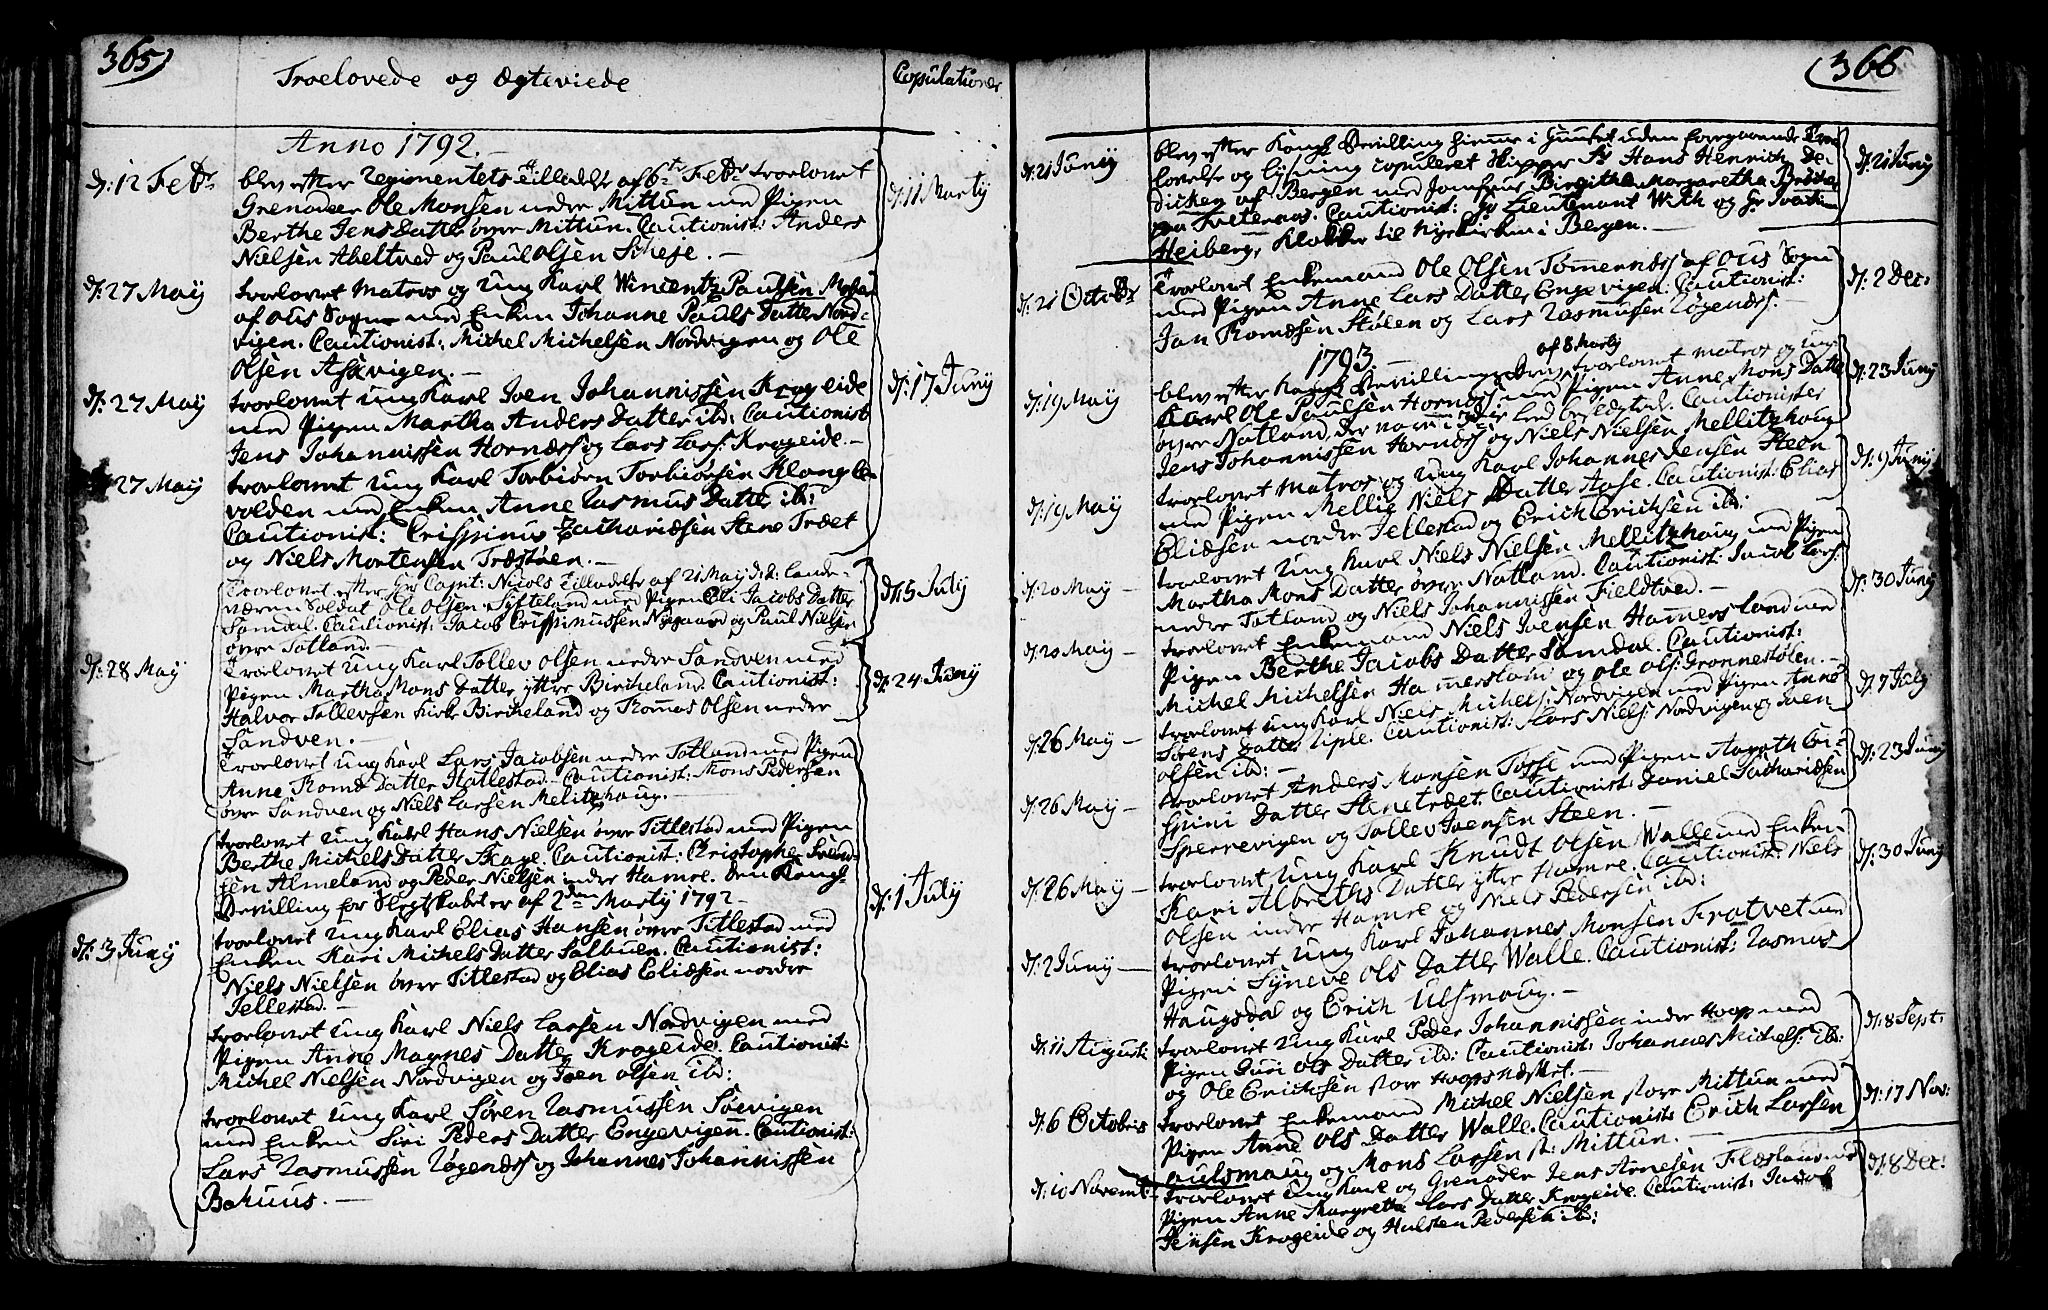 365)
Troelovede og Ægteviede
Copulationer
Anno 1792. –
d: 12 Febr
blev efter Regimentets Tilladelse af 6te Febr troelovet
Grenadeer Ole Monsen nedre Mittun med Pigen
Berthe Jens Datter øvre Mittun. Cautionist: Anders
Nielsen Abeltved og Paul Olsen Scheje. –
d: 11 Martij
d: 27 Maij
troelovet Matros og Ung Karl Wincentz Paulsen
af Ous Sogn med Enken Johanne Pauls Datter Nord=
vigen. Cautionist: Michel Michelsen Nordvigen og Ole
Olsen Askvigen. –
d: 27 Maij
troelovet Ung Karl Joen Johannissen Krogeide
med Pigen Martha Anders Datter ibd: Cautionist
Jens Johannissen Hornæss og Lars Lars: Krogeide. –
d: 17 Junij
27 Maij
troelovet Ung Karl Torbiørn Torbiørnsen Klongle=
volden med Enken Anne Rasmus Datter ib:
Cautionist: Crispinus Zachariæsen Stene Trædet
og Niels Mortensen Træstøen. –
Troelovet efter Hr Capit: Nicols Tilladelse af 21 Maij d: A: lande=
værn Soldat Ole Olsen Sifteland med Pigen Eli Jacobs Datter
Samdal. Cautionist: Jacob Crispinussen Nygaard og Paul Nielsen
øvre Totland. –
d: 5 July
d: 28 Maij
Troelovet Ung Karl Tollev Olsen nedre Sandven med
Pigen Martha Mons Datter yttre Bircheland. Cautionist:
Halvor Tollevsen Kirke Bircheland og Tommas Olsen nedre
Sandven. –
d: 24 Junij
Troelovet Ung Karl Lars Jacobsen nedre Totland med Pigen
Anne Tomæ Datter Hatlestad – Cautionist: Mons Pedersen
øvre Sandven og Niels Larsen Melitzhoug. –
troelovet Ung Karl Hans Nielsen øvre Titlestad med Pigen
Berthe Michels Datter Skage. Cautionist: Christopher Svend=
sen Almeland og Peder Nielsen indre Hamre. den Kongl=
Bevilling for Slegtskabet er af 2den Martij 1792 –
d: 1 July
d: 3 Junij
troelovet Ung Karl Elias Hansen øvre Titlestad med
Enken Kari Michels Datter Salbuen. Cautionist:
Niels Nielsen øvre Titlestad og Elias Eliæsen nordre
Jellestad. –
troelovet Ung Karl Niels Larsen Nordvigen med
Pigen Anne Magnes Datter Krogeide. Cautionist:
Michel Nielsen Nordvigen og Joen Olsen ibd:
troelovet Ung Karl Søren Rasmussen Søevigen
med Enken Siri Peders Datter Engevigen. Cautionist:
Lars Rasmussen Røgenæs og Johannes Johannissen
Bahuus. –
(366
d: 21 Junij
blev efter Kongl Bevilling hiemme i Huuset uden foregaaende Troe=
lovelse og lysning copuleret Skipper Sr Hans Henrich De=
dicken af Bergen med Jomfrue Birgitha Margaretha
paa. Cautionist: Hr Lieutenant With og Hr
Heiberg, Klokker til Nyekirken i Bergen. –
d: 21 Junij
d: 21 Octobr
Troelovet Enkemand Ole Olsen Tømmernæss af Ous Sogn
med Pigen Anne Lars Datter Engevigen. Cautionist:
Jan Tomæsen Stølen og Lars Rasmusen Røgenæs. –
d: 2 Dec:
1793 –
d: 19 Maij
af 8 Martij
blev efter Kongl Bevilling troelovet Matros og Ung
Karl Ole Paulsen Hornæss med Pigen Anne Mons Datter
øvre Natland, der var i 3die Led beslægtede. Cautionister
Jens Johannissen Hornæss og Niels Nielsen Mellitzhoug
d: 23 Junij
d: 19 Maij
troelovet Matros og Ung Karl Johannes Jensen Steen
med Pigen Mellig Niels Datter Aase. Cautionist: Elias
Eliæsen nordre Jellestad og Erich Erichsen ib:
d: 9 Junij
d: 20 Maij –
troelovet Ung Karl Niels Nielsen Mellitzhaug med Pigen
Martha Mons Datter øvre Natland. Cautionist: Jacob Lars:
nedre Totland og Niels Johannissen Fieldtved. –
d: 30 Junij
d: 20 Maij –
troelovet Enkemand Niels Joensen Hamersland med
Pigen Berthe Jacobs Datter Samdal. Cautionist:
Michel Michelsen Hamersland og Ole Ols: Grønnestølen. –
d: 7 July
d: 26 Maij –
troelovet Ung Karl Niels Michels: Nordvigen med Pigen Anne
Sørens Datter Riple. Cautionist: Lars Niels: Nordvigen og Joen
Olsen ib: –
d: 26 Maij –
troelovet Anders Monsen Tosse med Pigen Aagoth Cri=
spini Datter Stenetrædet. Cautionist: Daniel Zachariæsen
Sperrevigen og Tollev Joensen Steen. –
d: 23 Junij
d: 26 Maij –
troelovet Ung Karl Knudt Olsen Walle med Enken
Kari Albreths Datter yttre Hamre. Cautionist: Niels
Olsen indre Hamre og Niels Pedersen ib:
d: 30 Junij
d: 2 Junij –
troelovet Ung Karl Johannes Monsen Trotvet med
Pigen Synneve Ols Datter Walle. Cautionist: Rasmus
Haugsdal og Erich Ulsmoug. –
d: 11 August:
troelovet Ung Karl Peder Johannissen indre Hoop med
Pigen Guri Ols Datter ib: Cautionist: Johannes Michels: ib:
og Ole Erichsen store Hoopsnæsset. –
d: 8 Sept:
d: 6 Octobris
troelovet Enkemand Michel Nielsen store Mittun med
Pigen Anne Ols Datter Walle. Cautionist: Erich Larsen
aulsmaug og Mons Larsen st: Mittun. –
d: 17 Nov:
d: 10 Novemb:
troelovet Ung Karl og Grenadeer Jens Arnesen Flesland med
Pigen Anne Margrethe Lars Datter Krogeide. Cautionist: Jacob
Jensen Krogeide og Halsten Pedersen ib:
d: 8 Dec: